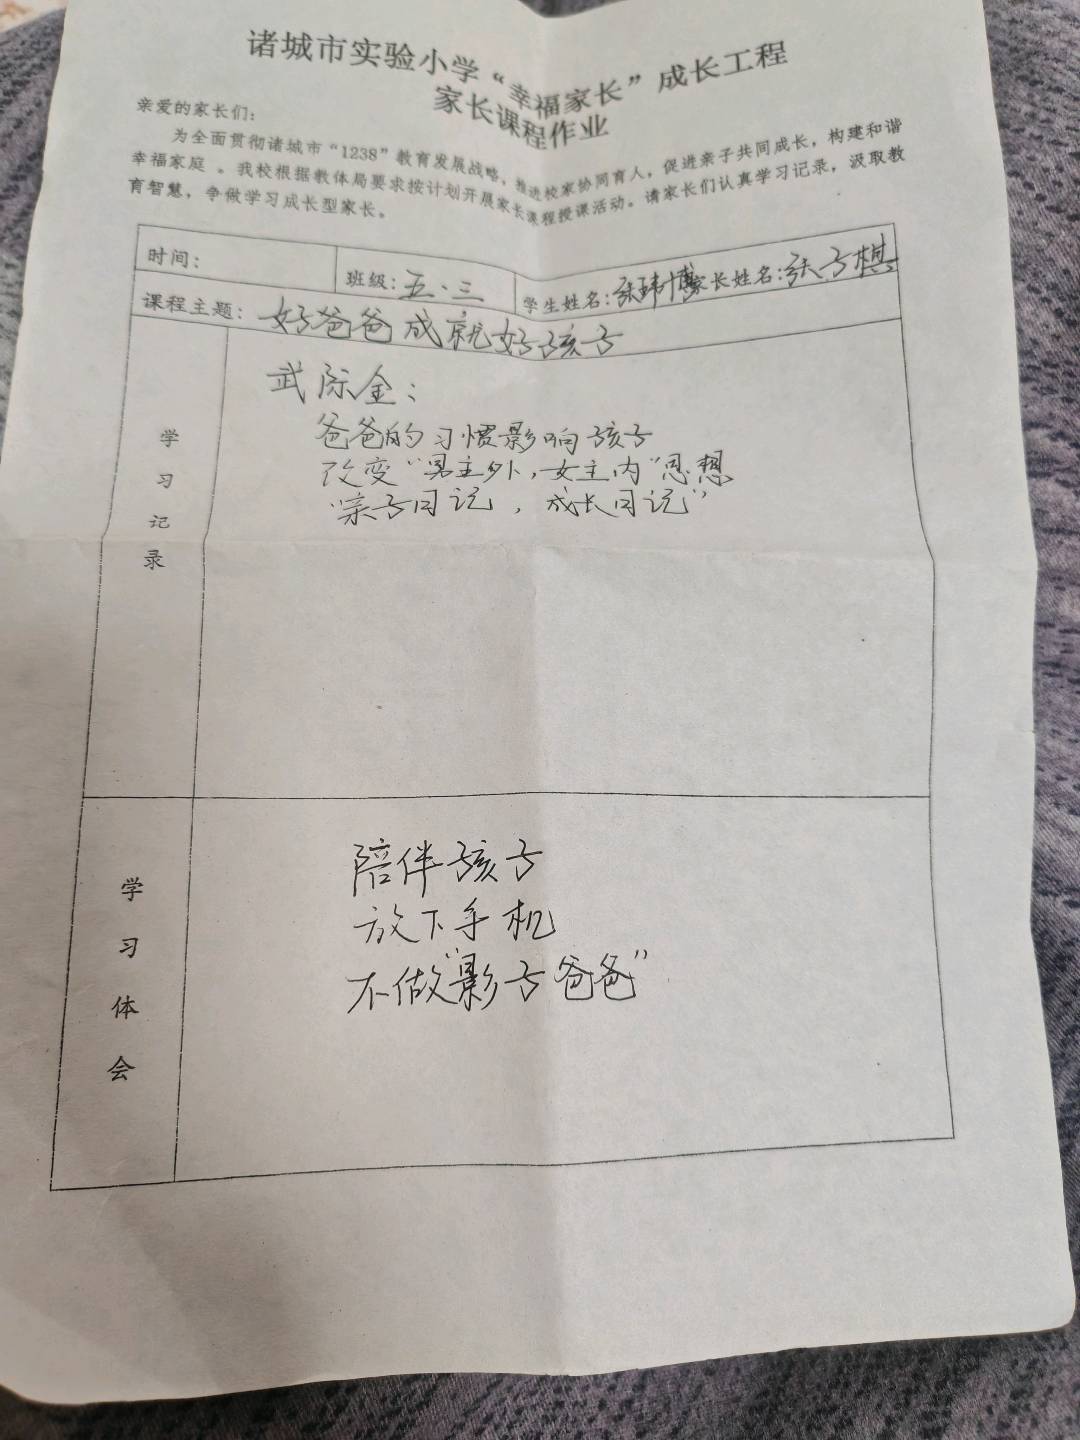 诸城市实验小学“幸福家长”成长工程
家长课程作业
亲爱的家长们：
为全面贯彻诸城市“1238”教育发展战略，推进校家协同育人，促进亲子共同成长，构建和谐
幸福家庭 。我校根据教体局要求按计划开展家长课程授课活动。请家长们认真学习记录，汲取教
育智慧，争做学习成长型家长。
时间： 班级：五.三 学生姓名：张玮博 家长姓名：张子棋
课程主题：好爸爸成就好孩子
学习记录
武际金：
爸爸的习惯影响孩子
改变“男主外，女主内”思想
“亲子日记，成长日记”
学习体会
陪伴孩子
放下手机
不做“影子爸爸”